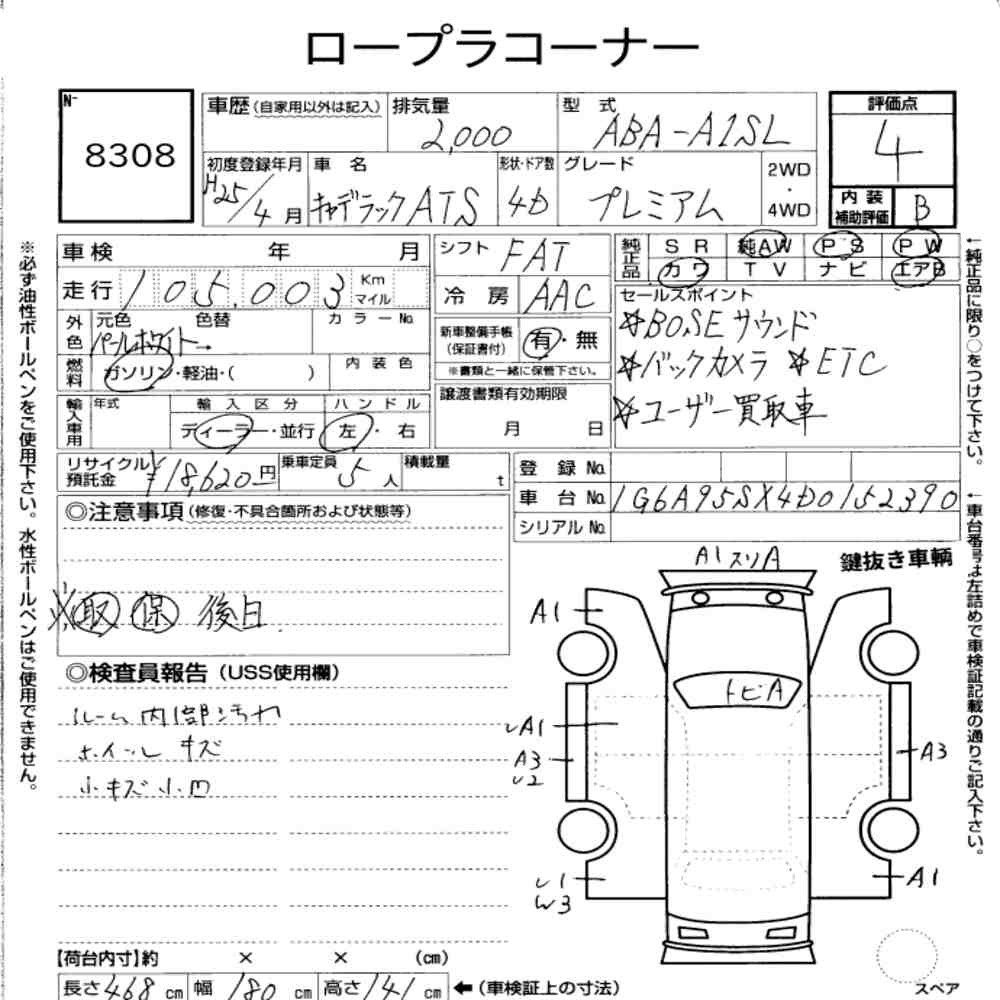 ロープラコーナー
No
8308
車歴(自家用以外は記入) 排気量 2,000 型式 ABA-A1SL
評価点 4
初度登録年月 H25/4月 車名 キャデラックATS 形状・ドア数 4D グレード プレミアム 2WD・4WD
内装補助評価 B
車検 年 月
走行 105,003 Km マイル
外色 元色 パールホワイト→ 色替 カラーNo.
燃料 ガソリン・軽油・( ) 内装色
輸入車用 年式 輸入区分 ディーラー・並行 ハンドル 左・右
リサイクル預託金 ¥18,620円 乗車定員 5人 積載量 t
シフト FAT
冷房 AAC
新車整備手帳(保証書付) 有・無
※書類と一緒に保管下さい。
譲渡書類有効期限
月 日
純正品 SR 純AW PS PW
カワ TV ナビ エアB
セールスポイント
☆BOSEサウンド
☆バックカメラ ☆ETC
☆ユーザー買取車
登録No.
車台No. 1G6A95SX4D0152390
シリアルNo.
◎注意事項(修復・不具合箇所および状態等)
※取 保 後日.
◎検査員報告(USS使用欄)
ルーム内部汚れ
ホイールキズ
小キズ小凹
鍵抜き車輌
A1スリA
A1
トビA
A1
A3
A3
U2
U1
W3
A1
スペア
【荷台内寸】約 × × (cm)
長さ468cm 幅180cm 高さ141cm ←(車検証上の寸法)
※必ず油性ボールペンをご使用下さい。水性ボールペンはご使用できません。
←純正品に限り○をつけて下さい。
←車台番号は左詰めで車検証記載の通りご記入下さい。